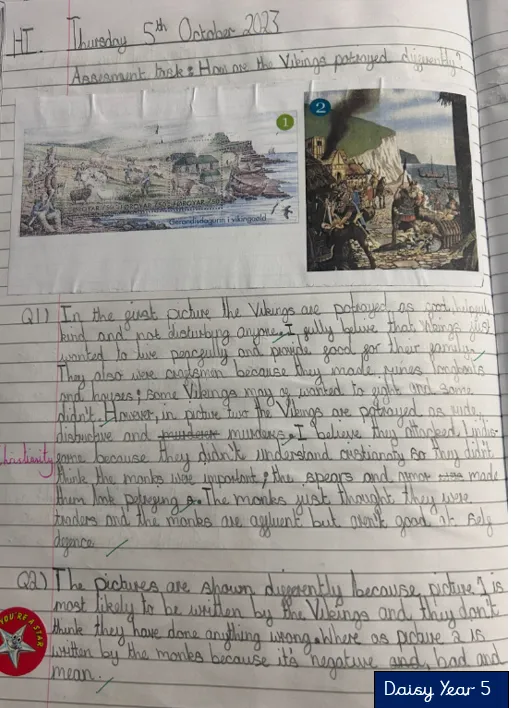 HI. Thursday 5th October 2023
Assessment task: How are the Vikings potrayed differently?
1
2
FØROYAR FØROYAR
Gerandisdagurin í víkingaøld
Q1) In the first picture the Vikings are potrayed as good, helpful
kind and not disturbing anyone. I fully belive that Vikings just
wanted to live peacfully and provide food for their familys.
They also were craftsmen because they made runes longboats
and houses; some Vikings may of wanted to fight and some
didn't. However, in picture two the Vikings are potrayed as rude,
distructive and murders. I believe they attacked
because they didn't understand cristianaty so they didn't
Christianity
think the monks were important; the spears and made
them look The monks just thought they were
traders and the monks are affluent but aren't good at self
defence.
Q2) The pictures are shown differently because, picture 1 is
most likely to be written by the Vikings and, they don't
think they have done anything wrong. Where as picture 2 is
written by the monks because it's negative and, bad and
mean.
YOU'RE A STAR
Daisy Year 5